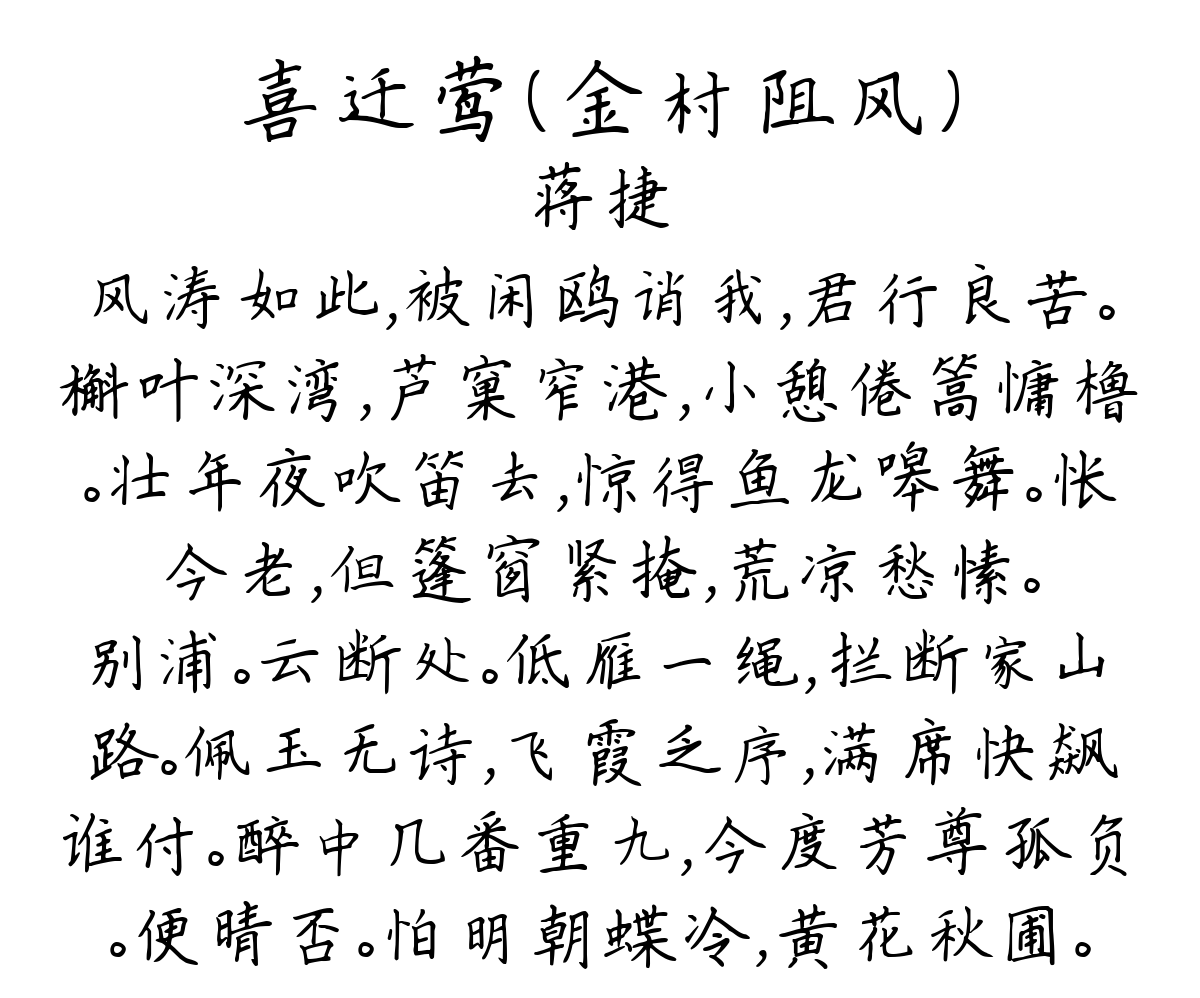 喜迁莺(金村阻风)
蒋捷
风涛如此,被闲鸥诮我,君行良苦。
槲叶深湾,芦窠窄港,小憩倦篙慵橹
。壮年夜吹笛去,惊得鱼龙嗥舞。怅
今老,但篷窗紧掩,荒凉愁愫。
别浦。云断处。低雁一绳,拦断家山
路。佩玉无诗,飞霞乏序,满席快飙
谁付。醉中几番重九,今度芳尊孤负
。便晴否。怕明朝蝶冷,黄花秋圃。